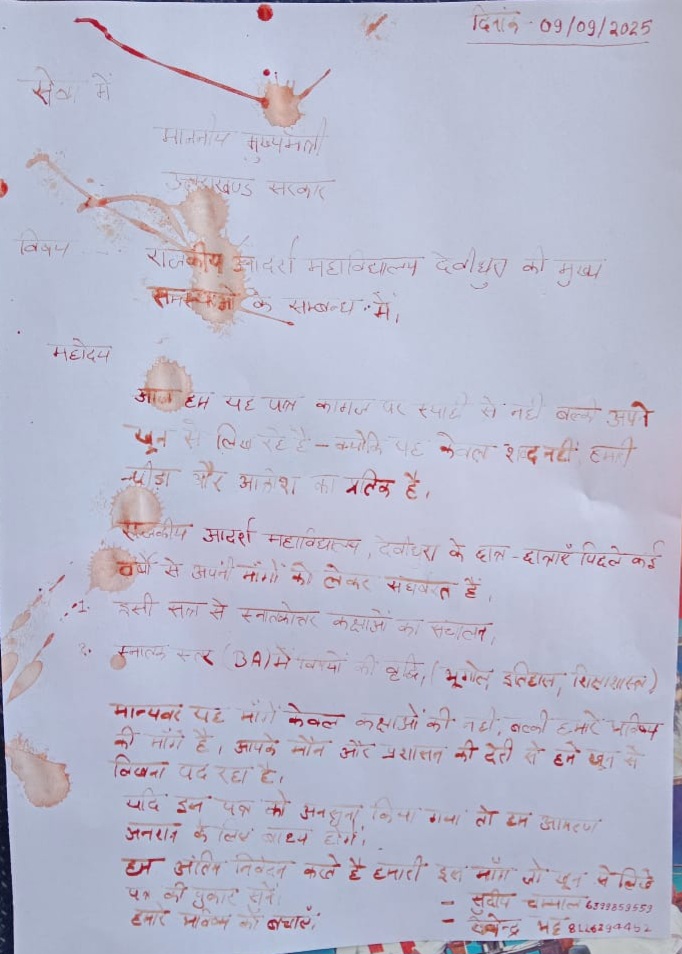 दिनांक - 09/09/2025
सेवा में
माननीय मुख्यमंत्री
उत्तराखण्ड सरकार
विषय
राजकीय आदर्श महाविद्यालय देवीधुरा की मुख्य
समस्याओं के सम्बन्ध में।
महोदय
आज हम यह पत्र कागज पर स्याही से नहीं बल्कि अपने
खून से लिख रहे है - क्योकि यह केवल शब्द नहीं, हमारी
पीड़ा और आक्रोश का प्रतिक है।
राजकीय आदर्श महाविद्यालय, देवीधुरा के छात्र - छात्राएँ पिछले कई
वर्षों से अपनी माँगों को लेकर संघर्षरत हैं।
1. इसी सत्र से स्नातकोत्तर कक्षाओं का संचालन,
2. स्नातक स्तर (BA) में विषयों की वृद्धि, (भूगोल, इतिहास, शिक्षाशास्त्र)
मान्यवर यह माँगें केवल कक्षाओं की नहीं, बल्की हमारे भविष्य
की माँगे है। आपके मौन और प्रशासन की देरी से हमे खून से
लिखना पड रहा है।
यदि इस पत्र को अनसुना किया गया तो हम आमरण
अनशन के लिए बाध्य होंगे।
हम अंतिम निवेदन करते है हमारी इस माँग जो खून से लिखे
पत्र की पुकार सुने।
हमारे भविष्य को बचालें।
- सुदीप चम्याल 6399859559
- देवेन्द्र भट्ट